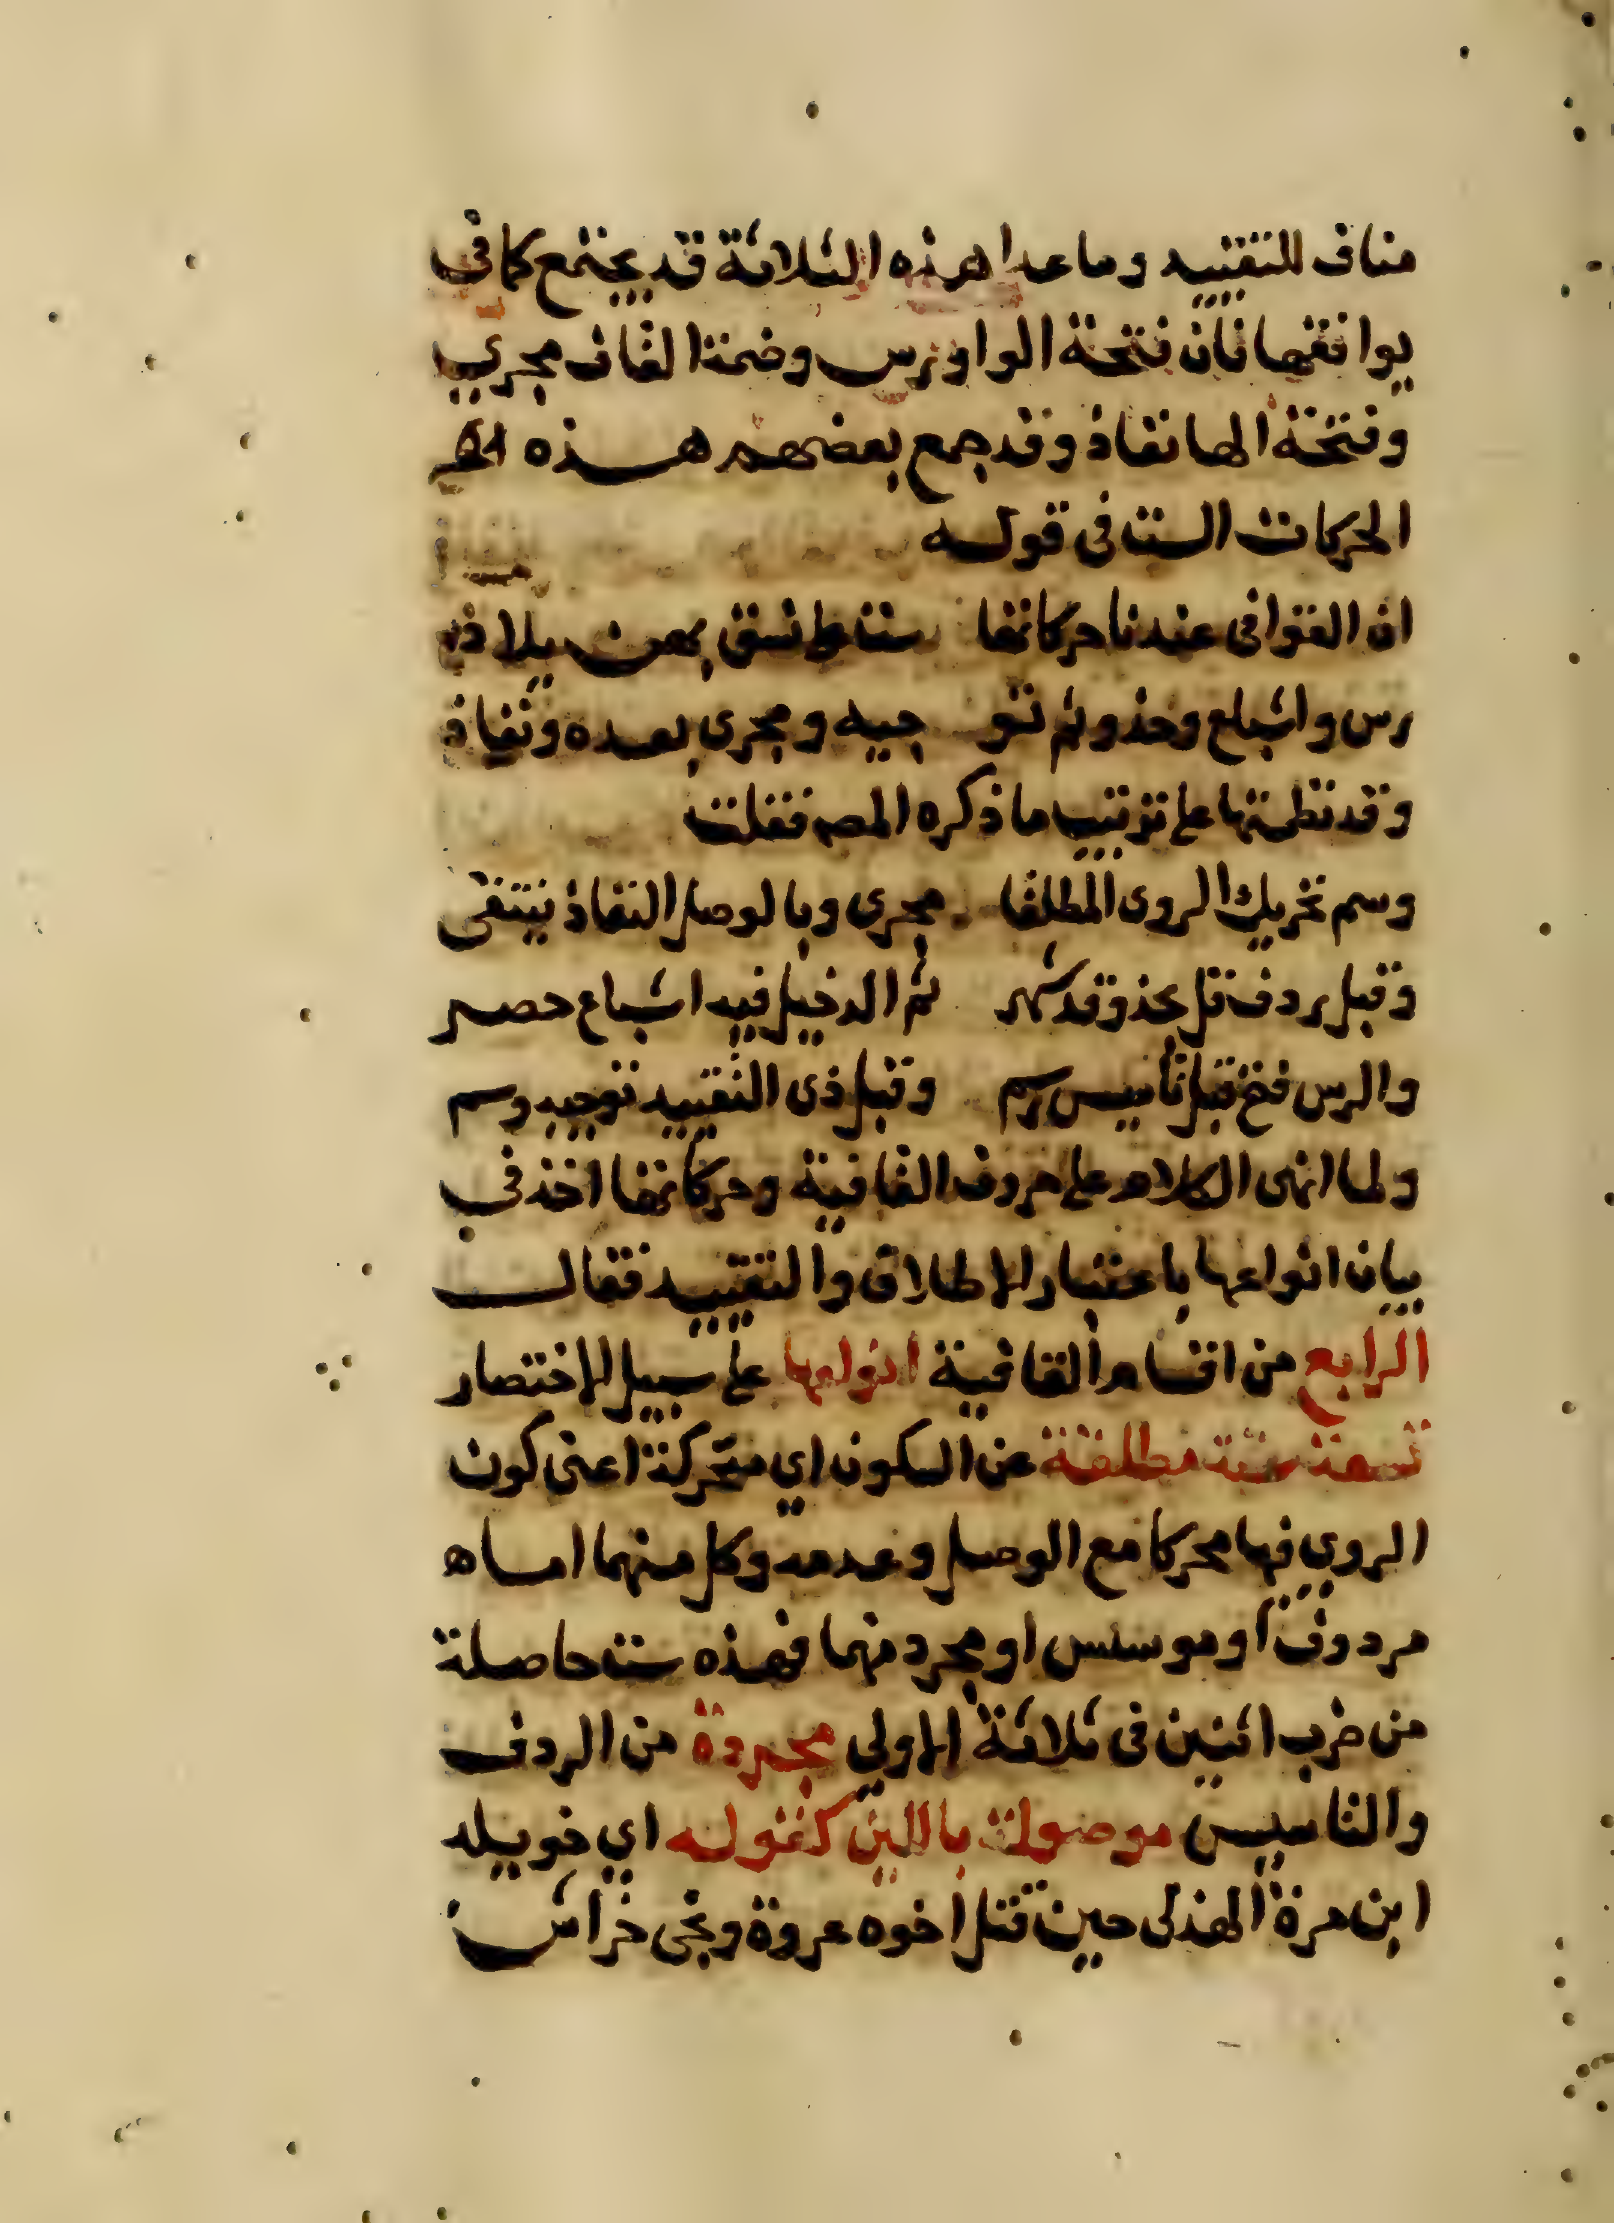 مناف للتقييد وما عدا هذه الثلاثة قد يجتمع كما في
يوافقها فان فتحة الواو رس وضمة القاف مجري
وفتحة الها نفاذ وقد جمع بعضهم هذه
الحركات الست في قوله
ان القوافي عندنا حركاتها ستة على نسق بهن يلاذ
رس واشباع وحذو ثم تو جيه ومجري بعده ونفاذ
وقد نظمتها على ترتيب ما ذكره المصه فقلت
وسم تحريك الروي المطلقا مجري وبالوصل النفاذ ينتقى
وقبل ردف قل بحذو قد شهر ثم الدخيل فيه اشباع حصر
والرس فتح قبل تأسيس رسم وقبل ذي التقييد توجيه وسم
ولما انهى الكلام على حروف القافية وحركاتها اخذ في
بيان انواعها باعتبار الاطلاق والتقييد فقال
الرابع من اقسام القافية انواعها على سبيل الاختصار
تسعة ستة مطلقة عن السكون اي متحركة اعني كون
الروي فيها محركا مع الوصل وعدمه وكل منهما اما ه
مردوف او موسس او مجرد منهما فهذه ستة حاصلة
من ضرب اثنين في ثلاثة الاولي مجردة من الردف
والتاسيس موصولة باللين كقوله اي خويلد
ابن مرة الهذلي حين قتل اخوه عروة ونجي خراش